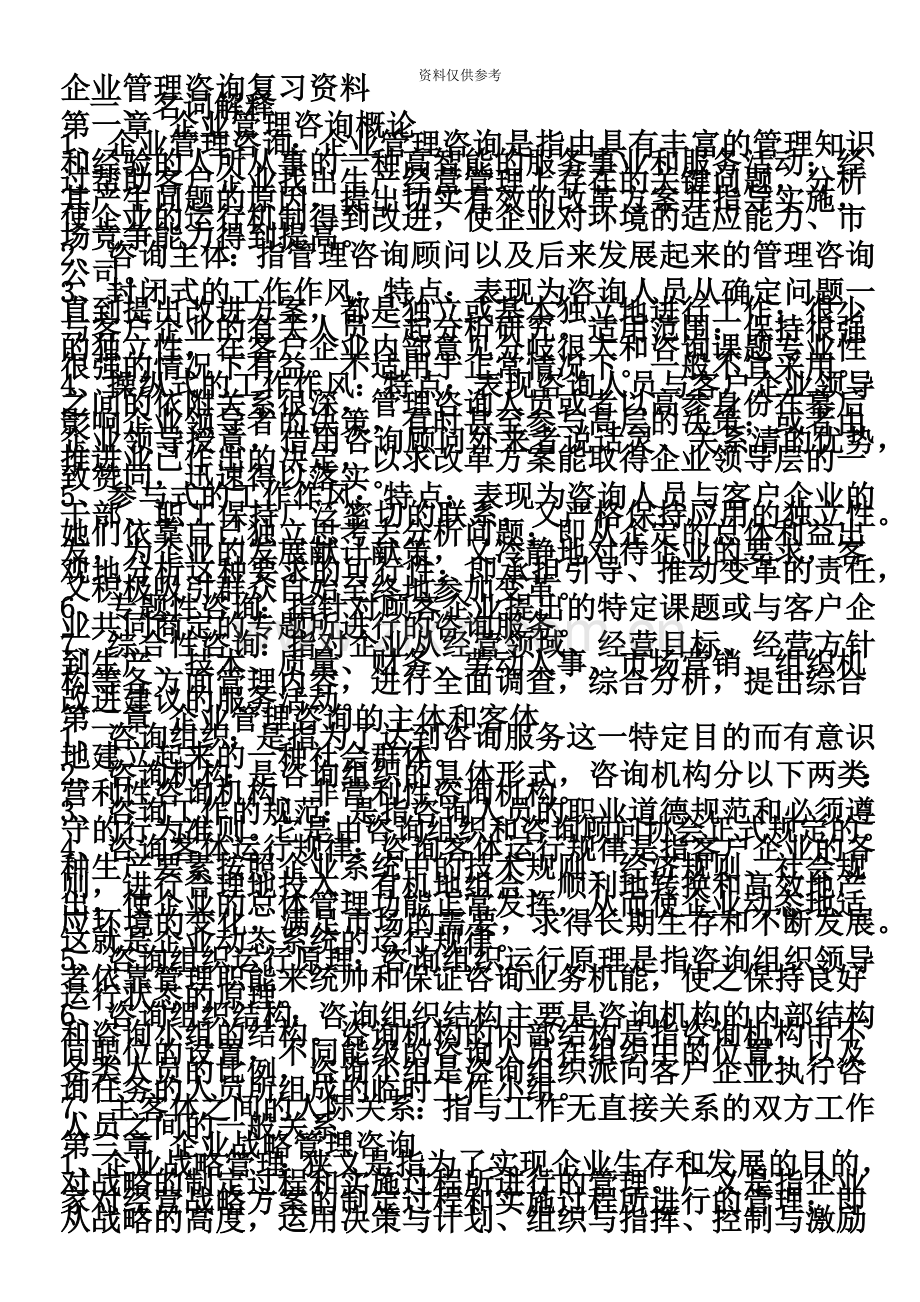 资料仅供参考
企业管理咨询复习资料
一、名词解释
第一章 企业管理咨询概论
1、企业管理咨询：企业管理咨询是指由具有丰富的管理知识
和经验的人所从事的一种高智能的服务事业和服务活动；经
过帮助客户企业找出生产经营管理上存在的关键问题，分析
其产生问题的原因，提出切实有效的改革方案并指导实施，
使企业的运行机制得到改进，使企业对环境的适应能力、市
场竞争能力得到提高。
2、咨询主体：指管理咨询顾问以及后来发展起来的管理咨询
公司。
3、封闭式的工作作风：特点：表现为咨询人员从确定问题一
直到提出改进方案，都是独立或基本独立地进行工作；很少
与客户企业的有关人员一起分析研究；适用范围：保持很强
的独立性，在客户企业内部意见分歧很大和咨询课题专业性
很强的情况下有益。不适用于正常情况下。一般不宜采用。
4、操纵式的工作作风：特点：表现咨询人员与客户企业领导
之间的依附关系很深，管理咨询人员或者以高参身份在幕后
影响企业领导者的决策，有时甚至参与高层的决策；或者由
企业领导授意，借用咨询顾问外来者说话灵、关系清的优势，
推进业已作出的决定，以求改革方案能取得企业领导层的一
致赞同，迅速得以落实。
5、参与式的工作作风：特点：表现为咨询人员与客户企业的
干部、职工保持广泛密切的联系，又严格保持应用的独立性。
她们依靠自己独立思考去分析问题，即从企定的总体和益出
发，为企业的发展献计献策，又冷静地对待企业的要求，客
观地分析这种要求的可行性；即承担引导、推动变革的责任，
又积极吸引群众自始至终地参加变革。
6、专题性咨询：指针对顾客企业提出的特定课题或与客户企
业共同商定的专题所进行的咨询服务。
7、综合性咨询：指对企业从经营领域、经营目标、经营方针
到生产、技术、质量、财务、劳动人事、市场营销、组织机
构等各方面管理内容，进行全面调查，综合分析，提出综合
改进建议的服务活动。
第二章 企业管理咨询的主体和客体
1、咨询组织：是指为了达到咨询服务这一特定目的而有意识
地建立起来的一种社会群体。
2、咨询机构：是咨询组织的具体形式，咨询机构分以下两类：
营利性咨询机构、非营利性咨询机构。
3、咨询工作的规范：是指咨询人员的职业道德规范和必须遵
守的行为准则。它是由咨询组织和咨询顾问协会正式规定的。
4、咨询客体运行规律：咨询客体运行规律是指客户企业的各
种生产要素按照企业系统中的技术规则、经济规则、社会规
则，进行合理地投入、有机地组合、顺利地转换和高效地产
出，使企业的总体管理功能正常发挥，从而使企业动态地适
应环境的变化，满足市场的需要，求得长期生存和不断发展。
这就是企业动态系统的运行规律。
5、咨询组织运行原理：咨询组织运行原理是指咨询组织领导
者依靠管理职能来统帅和保证咨询业务机能，使之保持良好
运行状态的原理。
6、咨询组织结构：咨询组织结构主要是咨询机构的内部结构
和咨询小组的结构。咨询机构的内部结构是指咨询机构中不
同职位的设置，不同能级的咨询人员在组织中的位置，以及
各类人员的比例，咨询小组是咨询组织派向客户企业执行咨
询任务的人员所组成的临时工作小组。
7、主客体之间的人际关系：指与工作无直接关系的双方工作
人员之间的一般关系。
第三章 企业战略管理咨询
1、企业战略管理：狭义是指为了实现企业生存和发展的目的，
对战略的制定过程和实施过程所进行的管理。广义是指企业
家对经营战略方案的制定过程和实施过程所进行的管理；即
从战略的高度，运用决策与计划、组织与指挥、控制与激励